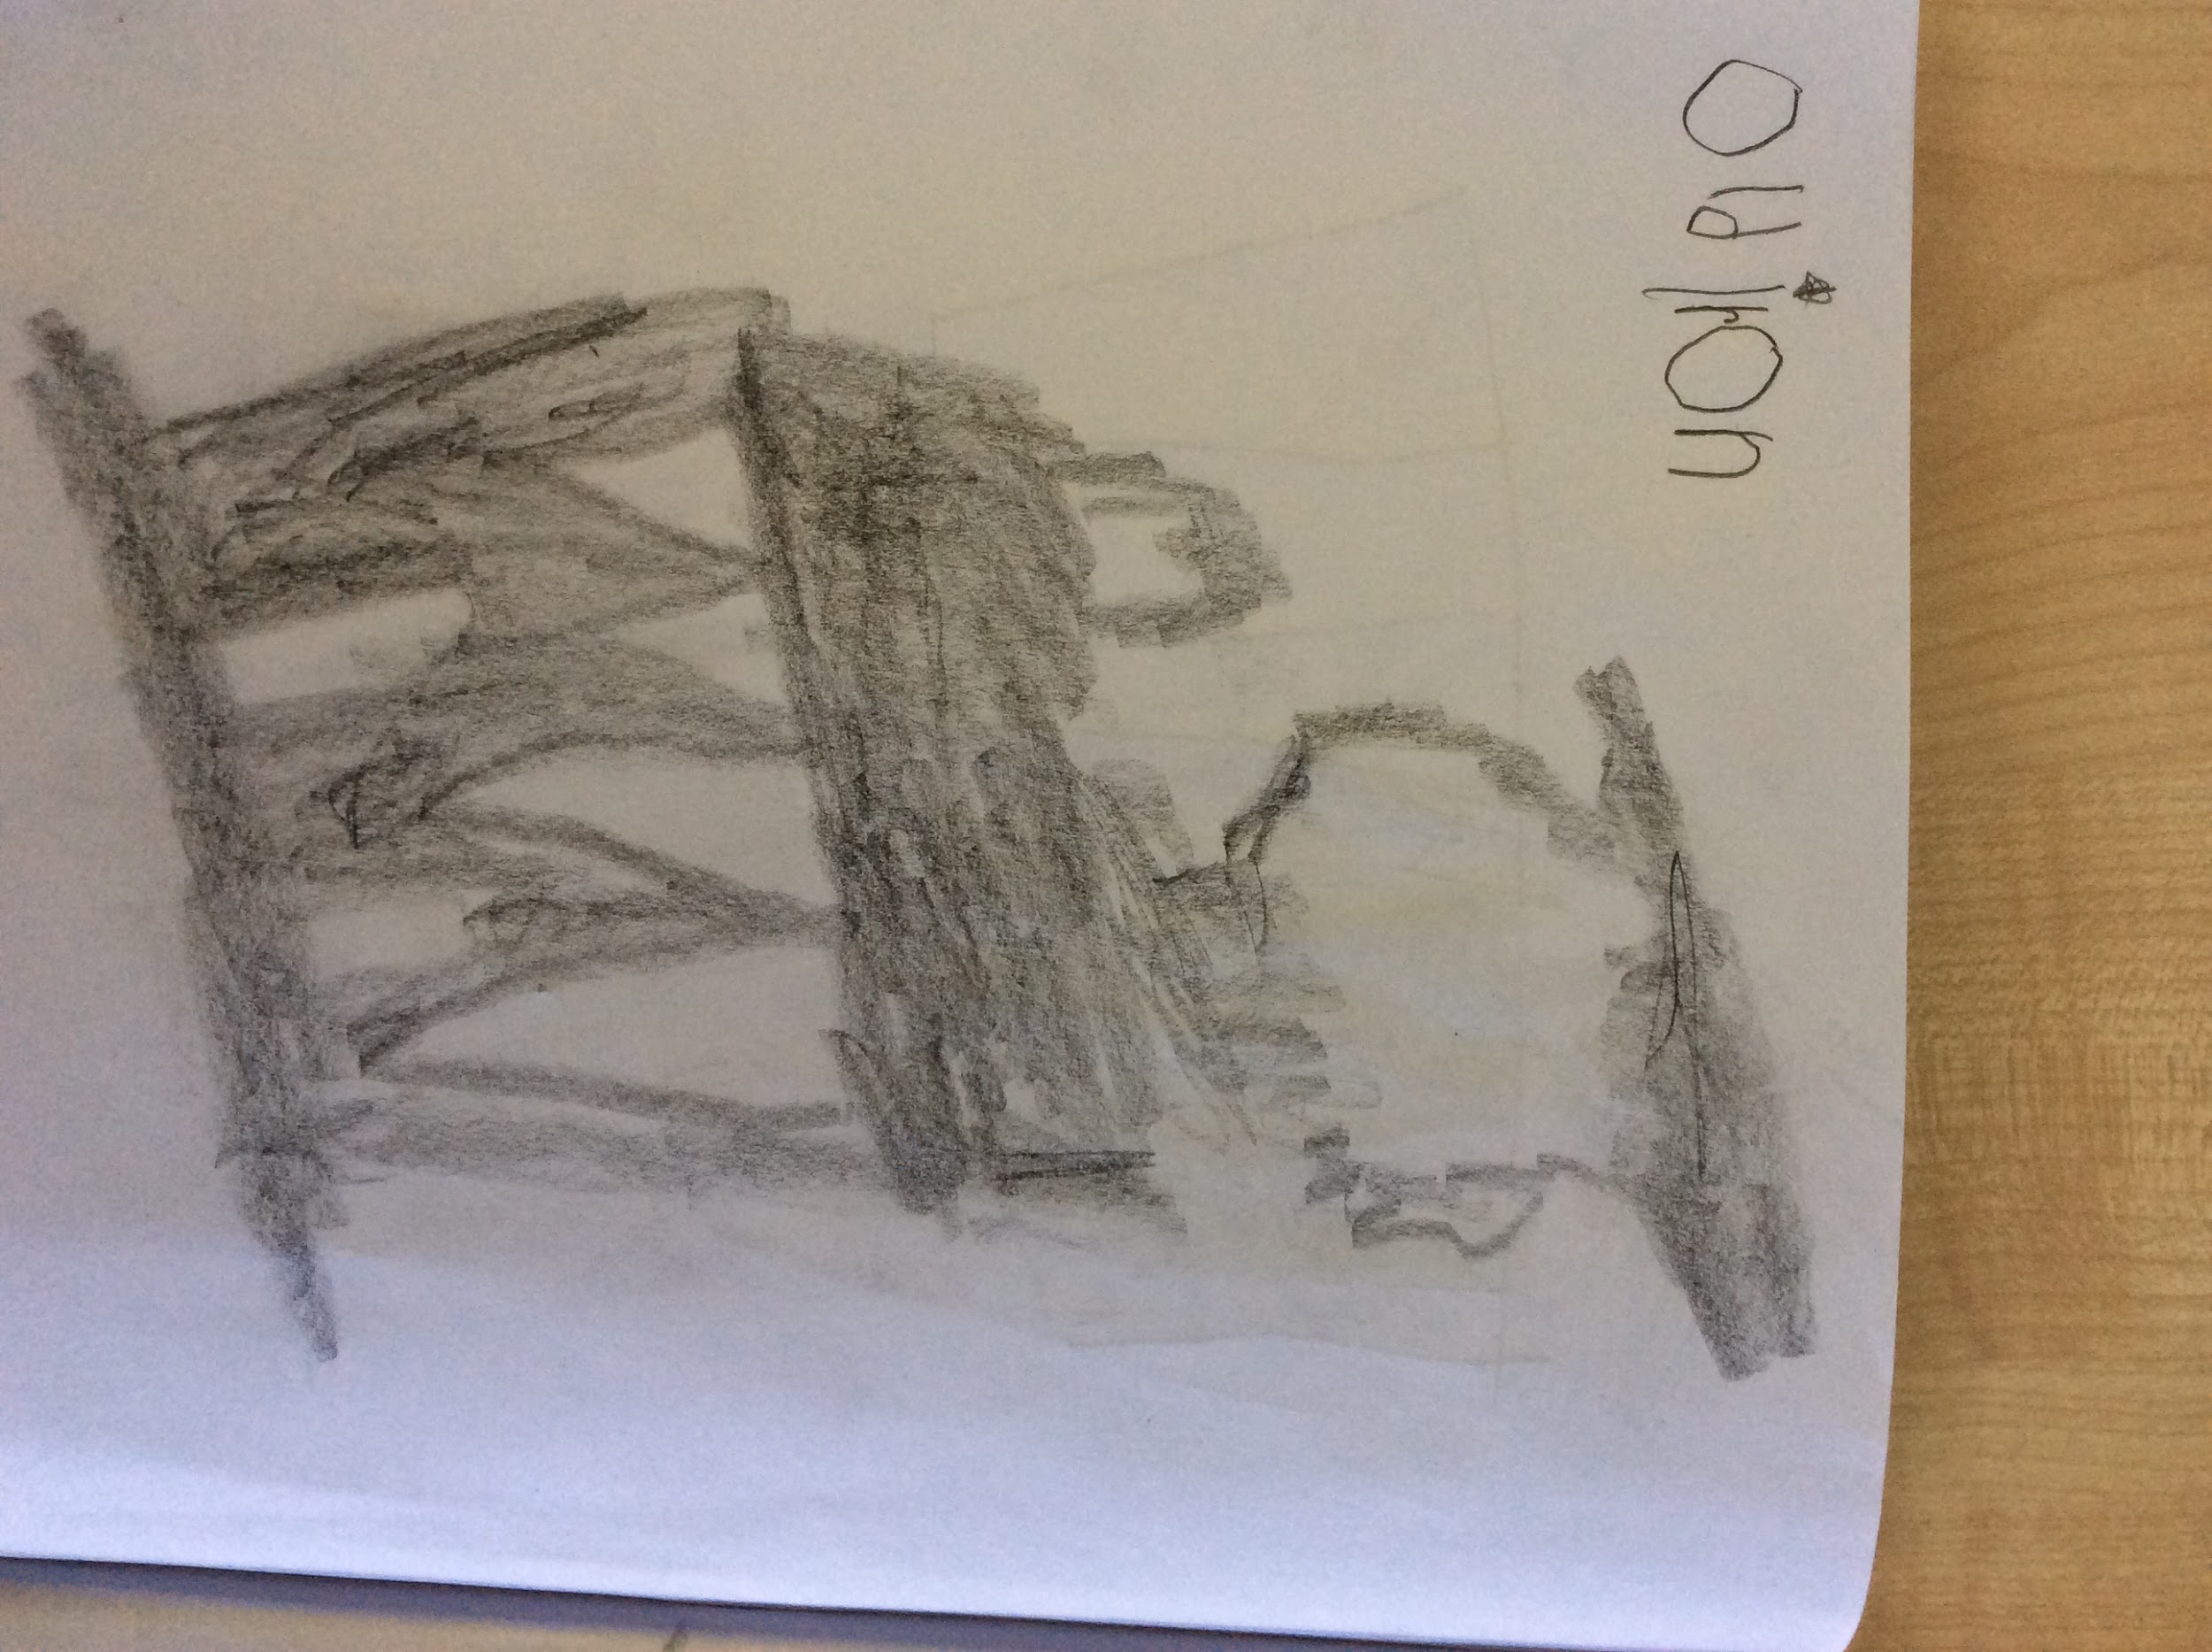 Old iron